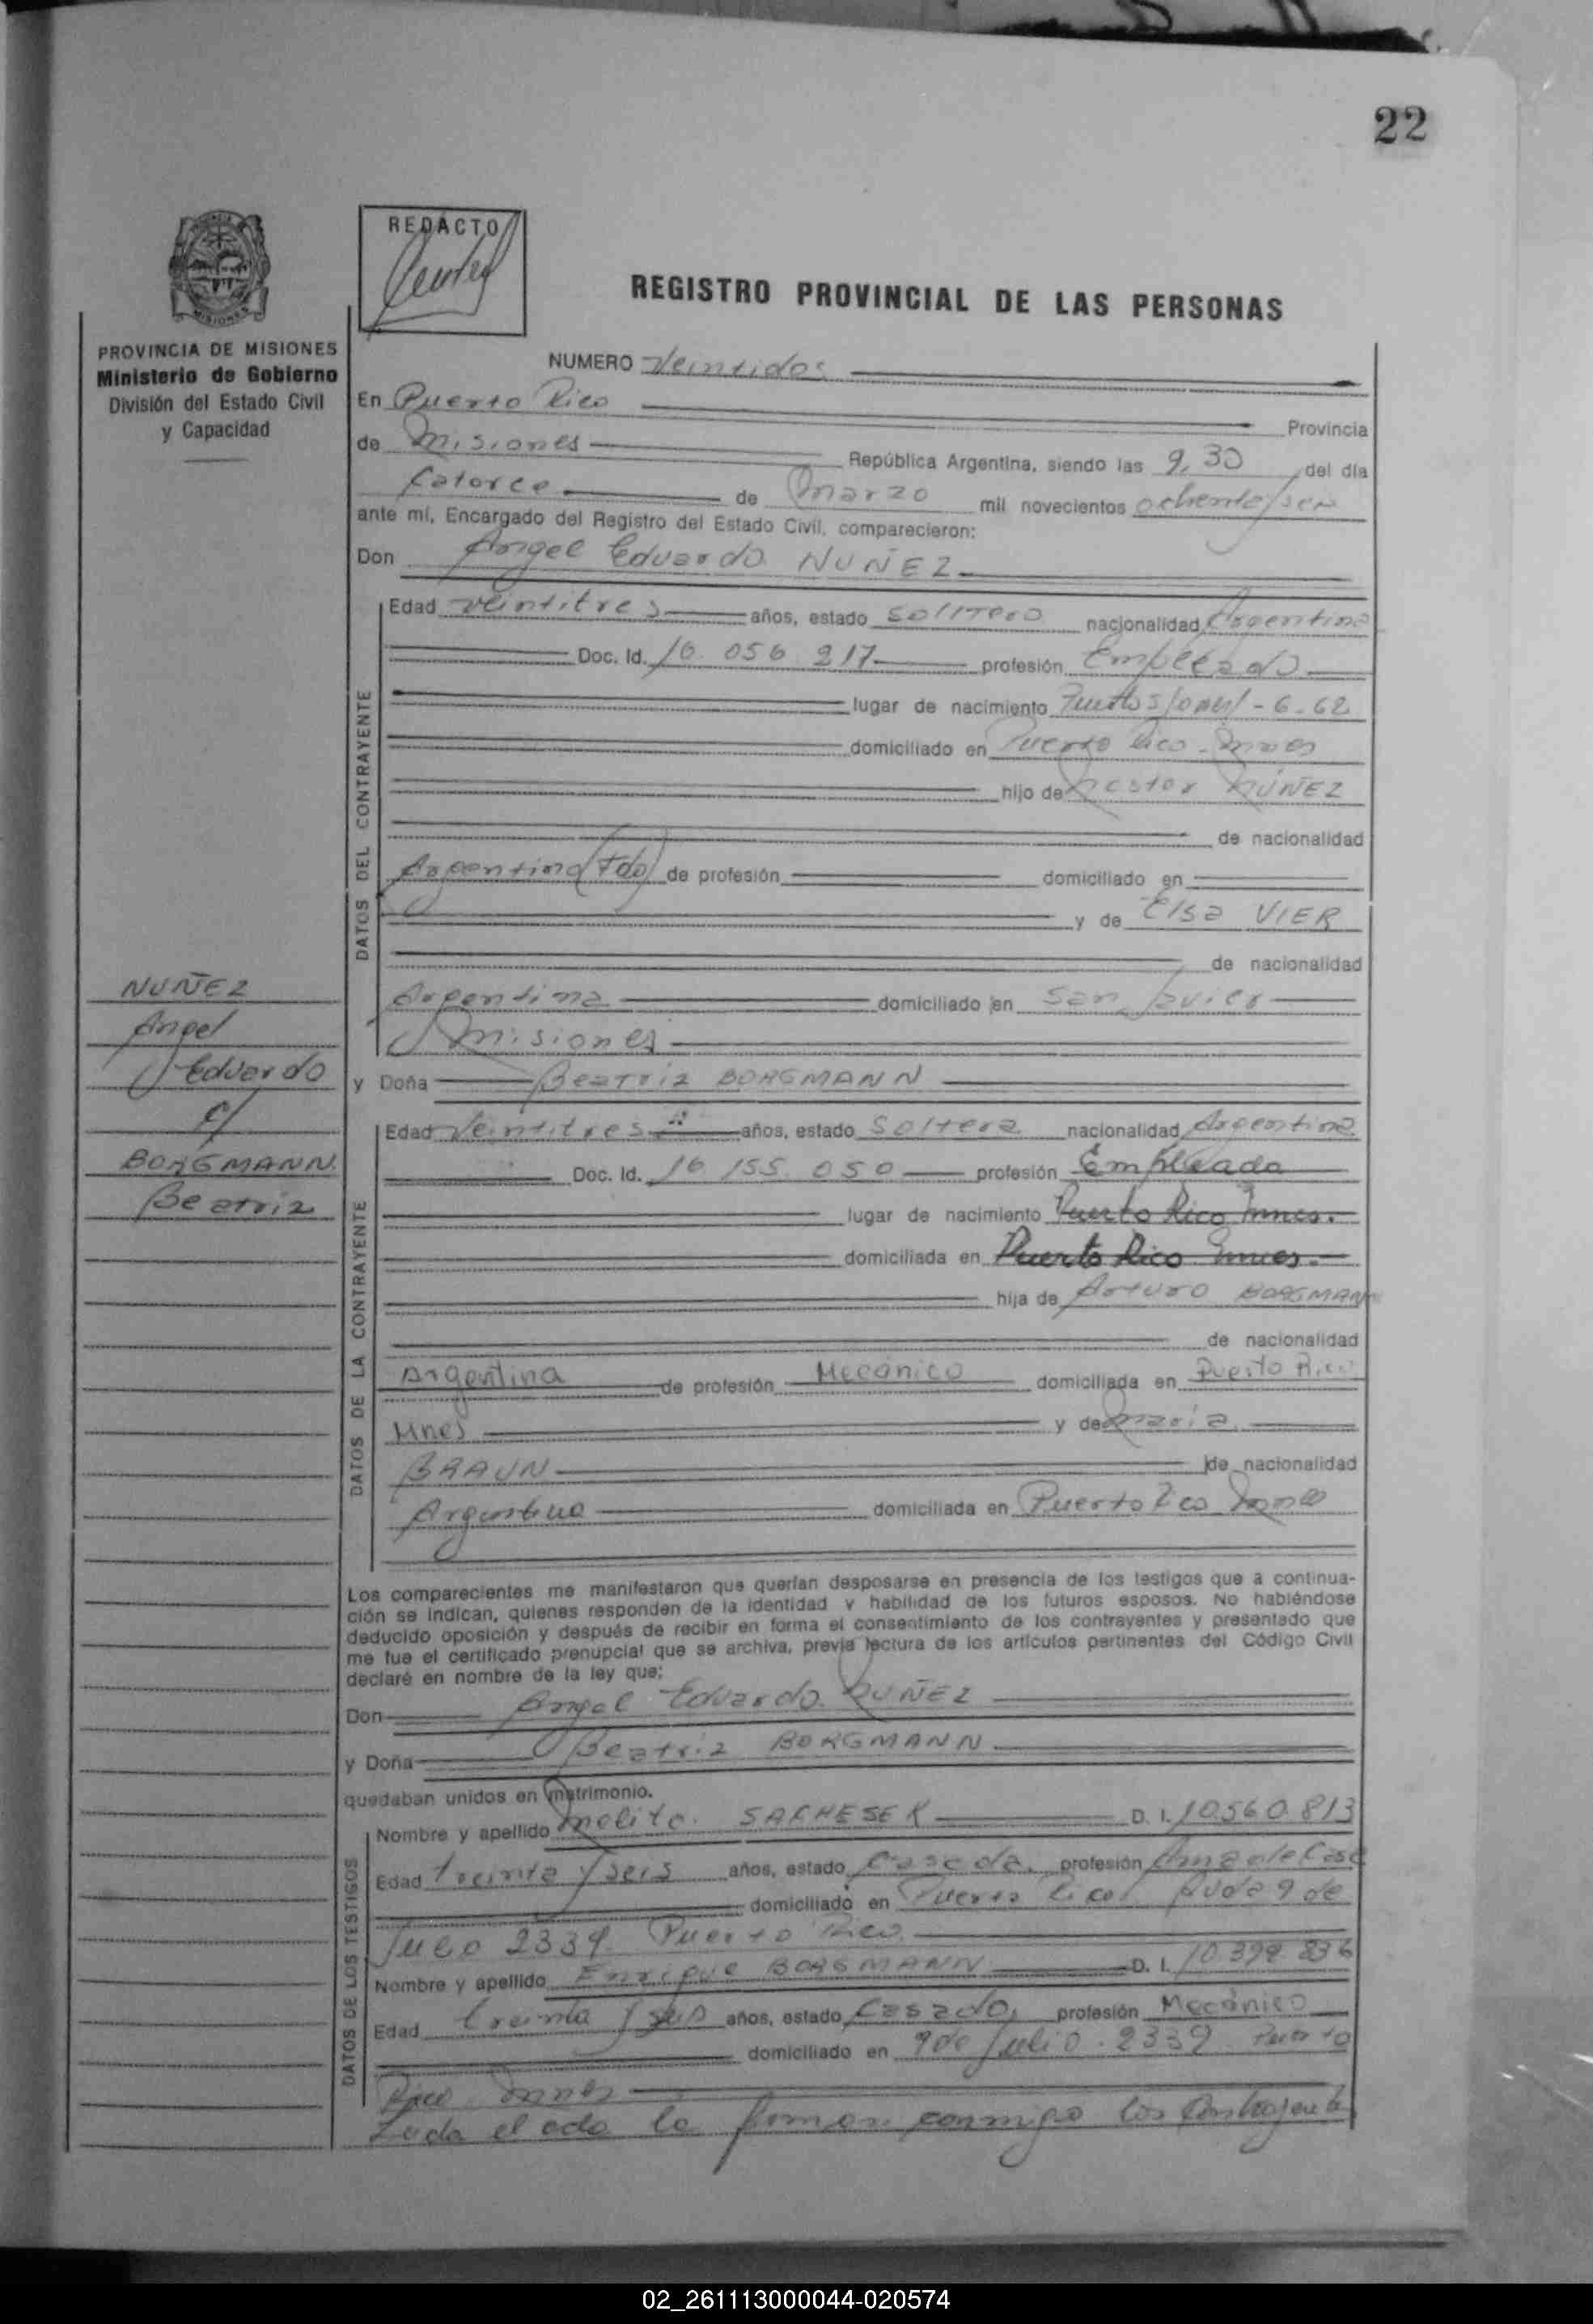 22
REDACTO
REGISTRO PROVINCIAL DE LAS PERSONAS
MISIONES
PROVINCIA DE MISIONES
Ministerio de Gobierno
División del Estado Civil
y Capacidad
NUMERO Veintidos
En Puerto Rico Provincia
de Misiones República Argentina, siendo las 9,30 del día
Catorce de Marzo mil novecientos ochenta/seis
ante mí, Encargado del Registro del Estado Civil, comparecieron:
Don Angel Eduardo NUÑEZ
DATOS DEL CONTRAYENTE
Edad Veintitres años, estado Soltero nacionalidad Argentina
Doc. Id. 16.056.917 profesión Empleado
lugar de nacimiento - 6-62
domiciliado en Puerto Rico - Mnes
hijo de Nestor NUÑEZ
de nacionalidad
Argentina (Fdo) de profesión domiciliado en
y de Elsa VIER
de nacionalidad
Argentina domiciliado en San Javier
Misiones
NUÑEZ
Angel
Eduardo
c/
BORGMANN
Beatriz
y Doña Beatriz BORGMANN
DATOS DE LA CONTRAYENTE
Edad Veintitres años, estado Soltera nacionalidad Argentina
Doc. Id. 16.155.050 profesión Empleada
lugar de nacimiento Puerto Rico Mnes.
domiciliada en Puerto Rico Mnes.
hija de Arturo BORGMANN
de nacionalidad
Argentina de profesión Mecánico domiciliada en Puerto Rico
Mnes y de Maria
BRAUN de nacionalidad
Argentina domiciliada en Puerto Rico Mnes
Los comparecientes me manifestaron que querían desposarse en presencia de los testigos que a continua-
ción se indican, quienes responden de la identidad y habilidad de los futuros esposos. No habiéndose
deducido oposición y después de recibir en forma el consentimiento de los contrayentes y presentado que
me fue el certificado prenupcial que se archiva, previa lectura de los artículos pertinentes del Código Civil
declaré en nombre de la ley que:
Don Angel Eduardo NUÑEZ
y Doña Beatriz BORGMANN
quedaban unidos en matrimonio.
DATOS DE LOS TESTIGOS
Nombre y apellido Melita D. I. 10.560.813
Edad treinta y seis años, estado Casada. profesión Ama de Casa
domiciliado en Puerto Rico. Avda 9 de
Julio 2339. Puerto Rico.
Nombre y apellido Enrique BORGMANN D. I. 10.399.836
Edad treinta y seis años, estado Casado, profesión Mecánico
domiciliado en 9 de Julio - 2339 Puerto
Rico Mnes
Leida el acta la firman conmigo los Contrayentes
02_261113000044-020574